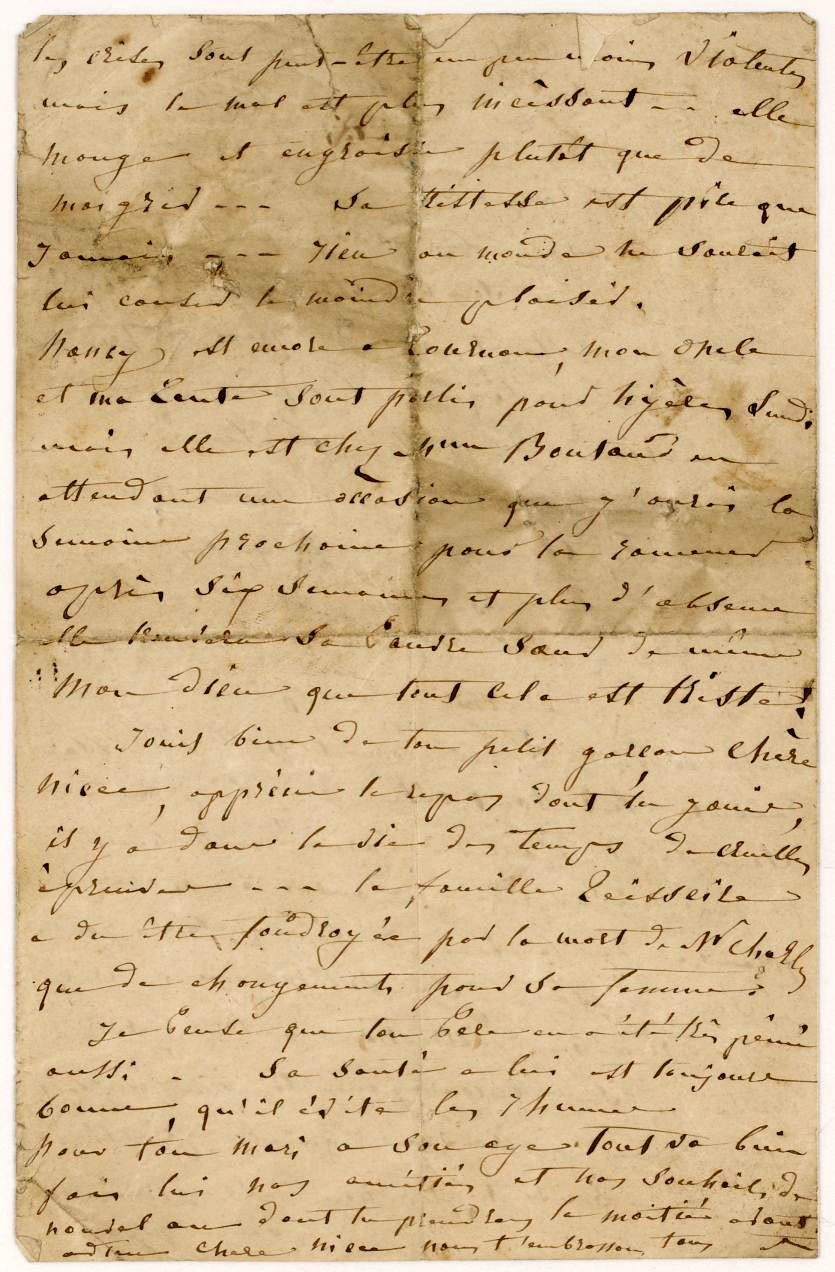 les crises sont peut-être un peu moins violentes
mais le mal est plus incèssant -- elle
mange et engraisse plutôt que de
maigrir --- Sa tristesse est pire que
jamais --- rien au monde ne saurait
lui causer le moindre plaisir.
Nancy est encore a Tournon, mon oncle
et ma tante sont partis pour hyères lundi
mais elle est chez Mme Boutaud en
attendant une occasion que j'aurai la
semaine prochaine pour la ramener
après six semaines et plus d'absence
elle trouvera sa pauvre sœur de même
Mon dieu que tout cela est triste!
Jouis bien de ton petit garcon chère
niece, apprécie le repos dont tu jouis,
il y a dans la vie des temps de cruelles
épreuves --- la famille Teisseire
a du être foudroyée par la mort de Mr Charles
que de changements pour sa femme?
Je pense que ton père en a été très peiné
aussi - Sa santé a lui est toujours
bonne, qu'il évite les rhumes
pour ton mari a son age tout va bien
fais lui nos amitiés et nos souhaits de
nouvel an dont tu prendras la moitié avant
adieu chere niece nous t'embrassons tous